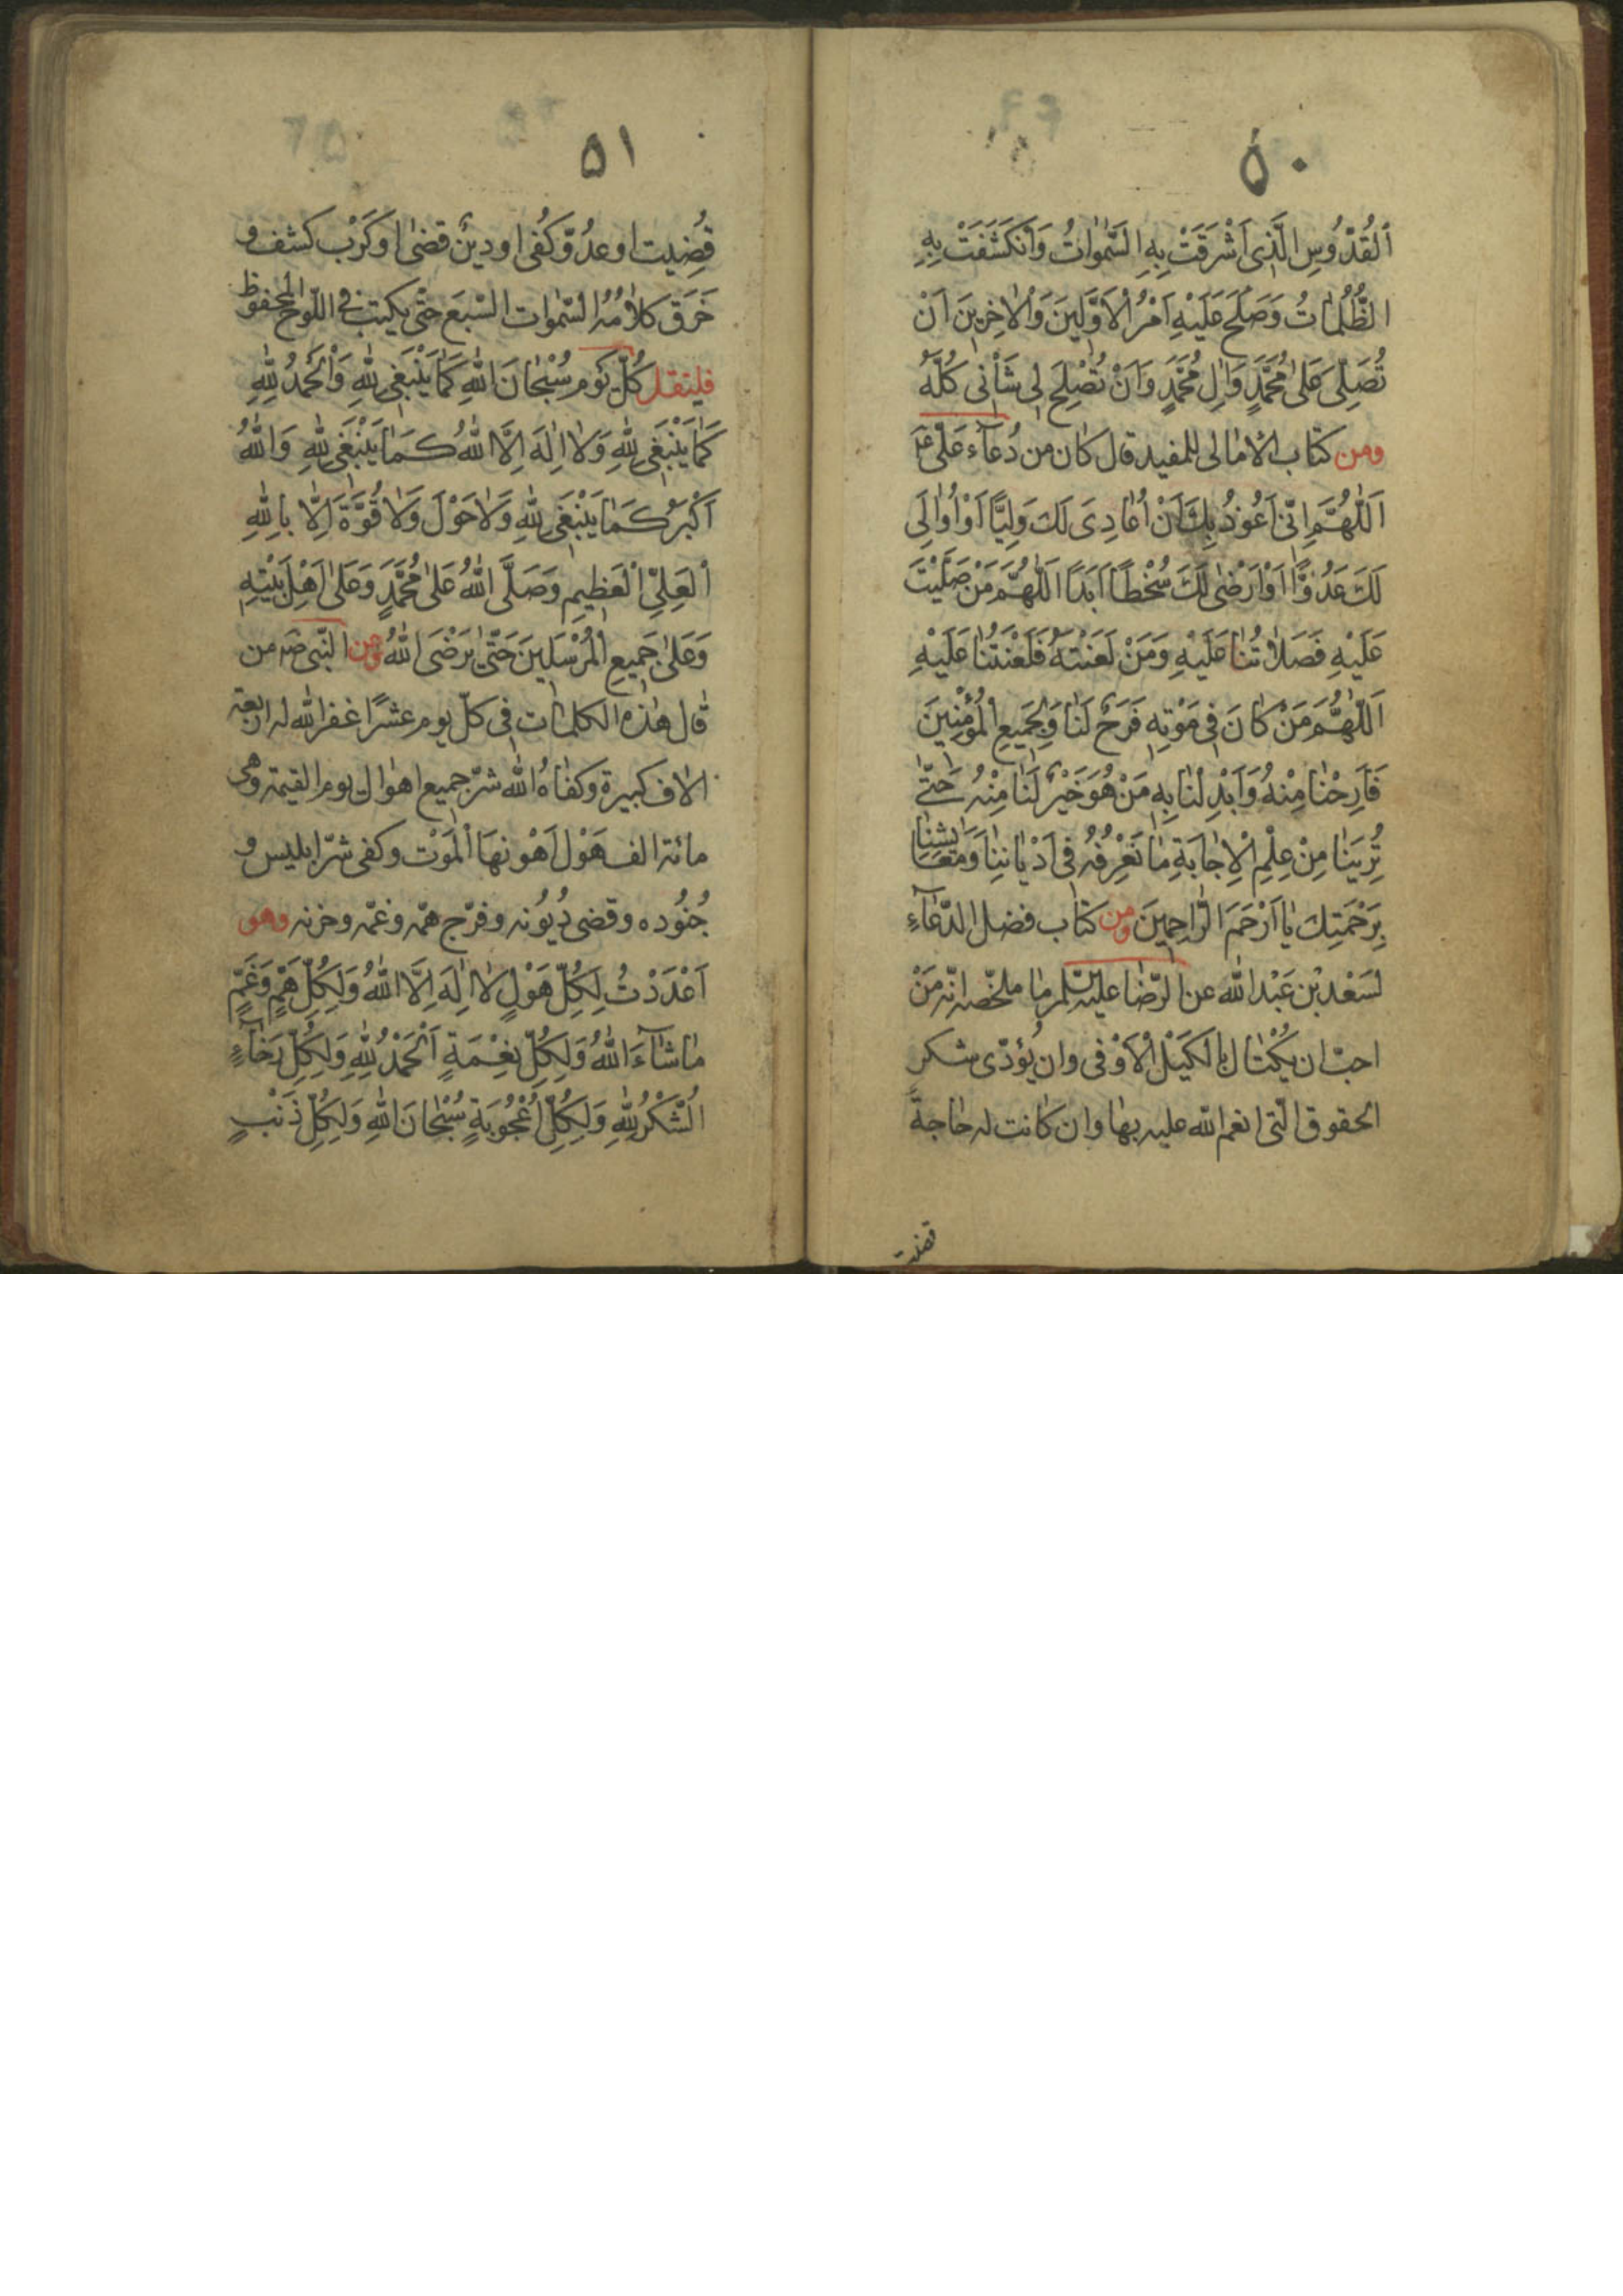 ٥٠
اَلْقُدُّوسِ الَّذِى اَشْرَقَتْ بِهِ السَّمٰوَاتُ وَانْكَشَفَتْ بِهِ
الظُّلُمٰاتُ وَصَلَحَ عَلَيْهِ اَمْرُ الْاَوَّلِينَ وَالْاٰخِرِينَ اَنْ
تُصَلِّىَ عَلىٰ مُحَمَّدٍ وَاٰلِ مُحَمَّدٍ وَاَنْ تُصْلِحَ لِى شَأْنِى كُلَّهُ
ومن كتاب الامالى للمفيد قال كان من دُعآء علىّ ع
اَللّٰهُمَّ اِنّى اَعُوذُ بِكَ اَنْ اُعٰادِىَ لَكَ وَلِيًّا اَوْ اُوٰالِىَ
لَكَ عَدُوًّا اَوْ اَرْضىٰ لَكَ سُخْطًا اَبَدًا اَللّٰهُمَّ مَنْ صَلَّيْتَ
عَلَيْهِ فَصَلاٰتُنٰا عَلَيْهِ وَمَنْ لَعَنْتَهُ فَلَعْنَتُنٰا عَلَيْهِ
اَللّٰهُمَّ مَنْ كٰانَ فِى مَوْتِهِ فَرَحٌ لَنٰا وَلِجَمِيعِ الْمُؤْمِنِينَ
فَاَرِحْنٰا مِنْهُ وَاَبْدِلْنٰا بِهِ مَنْ هُوَ خَيْرٌ لَنٰا مِنْهُ حَتّىٰ
تُرِيَنٰا مِنْ عِلْمِ الْاِجٰابَةِ مٰا نَعْرِفُهُ فِى اَدْيٰانِنٰا وَمَعٰايِشِنٰا
بِرَحْمَتِكَ يٰا اَرْحَمَ الرّٰاحِمِينَ ومن كتاب فضل الدّعآءِ
لسَعْد بْن عَبْد اللّه عن الرّضا عليه السلم ما ملخّصه انّه مَنْ
احبّ ان يكْتال بالكَيْل الْاَوْفى وان يُؤدّى شكر
الحقوق الّتى انعم اللّه عليه بها وان كانت له حاجة
قضيت
٥١
قُضِيت او عدُوّ كُفى او دينٌ قضى او كَرْب كشف و
خَرَق كلامُهُ السّمٰوات السّبعَ حتّى يكتب فى اللّوح المحفوظ
فليقل كُلّ يَوْم سُبْحٰانَ اللّٰهِ كَمٰا يَنْبَغِى لِلّٰهِ وَالْحَمْدُ لِلّٰهِ
كَمٰا يَنْبَغِى لِلّٰهِ وَلاٰ اِلٰهَ اِلَّا اللّٰهُ كَمٰا يَنْبَغِى لِلّٰهِ وَاللّٰهُ
اَكْبَرُ كَمٰا يَنْبَغِى لِلّٰهِ وَلاٰ حَوْلَ وَلاٰ قُوَّةَ اِلّٰا بِاللّٰهِ
الْعَلِىِّ الْعَظِيمِ وَصَلَّى اللّٰهُ عَلىٰ مُحَمَّدٍ وَعَلىٰ اَهْلِ بَيْتِهِ
وَعَلىٰ جَمِيعِ الْمُرْسَلِينَ حَتّىٰ يَرْضَى اللّٰهُ وعن النّبى ص من
قال هٰذه الكلمات فى كلّ يوم عشرًا غفر اللّه له اربعة
الاف كبيرة وكفاهُ اللّه شرّ جميع اهوال يوم القيمة وهى
مائة الف هَوْل اَهْونها الْمَوْت وكفى شرّ ابليس و
جُنُوده وقضى دُيُونه وفرّج همّه وغمّه وحزنه وهو
اَعْدَدْتُ لِكُلِّ هَوْلٍ لاٰ اِلٰهَ اِلَّا اللّٰهُ وَلِكُلِّ هَمٍّ وَغَمٍّ
مٰا شٰآءَ اللّٰهُ وَلِكُلِّ نِعْمَةٍ اَلْحَمْدُ لِلّٰهِ وَلِكُلِّ رَخٰآءٍ
الشُّكْرُ لِلّٰهِ وَلِكُلِّ اُعْجُوبَةٍ سُبْحٰانَ اللّٰهِ وَلِكُلِّ ذَنْبٍ